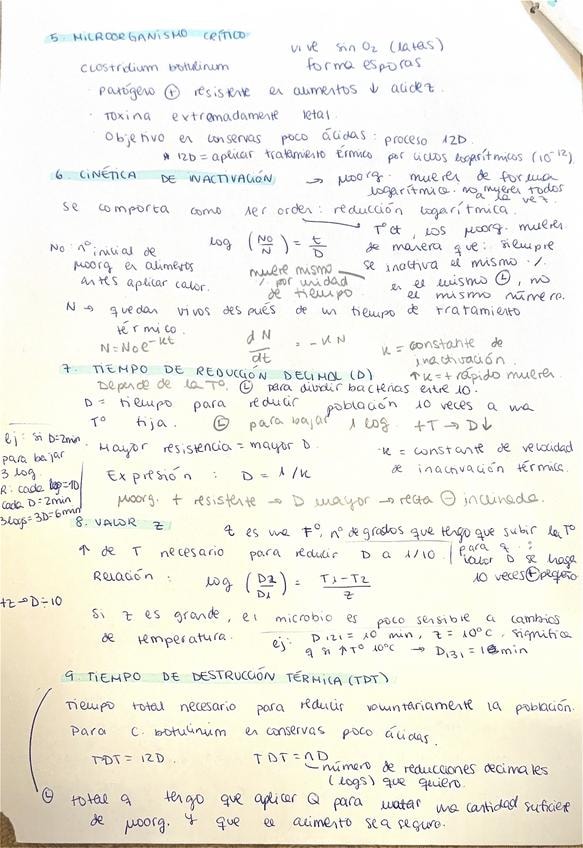 5. MICROORGANISMO CRÍTICO
vive sin O2 (latas)
Clostridium botulinum forma esporas
· Patógeno ⊕ resistente en alimentos ↓ acidez.
· Toxina extremadamente letal.
· Objetivo en conservas poco ácidas: proceso 12D.
* 12D = aplicar tratamiento térmico por ciclos logarítmicos (10⁻¹²).
6. CINÉTICA DE INACTIVACIÓN → moorg. mueren de forma
logarítmica. no mueren todos
a la vez.
Se comporta como 1er orden: reducción logarítmica.
Tº ct, los moorg. mueren
No: nº inicial de log (No/N) = t/D de manera que: siempre
moorg en alimentos muere mismo se inactiva el mismo %
antes aplicar calor. % por unidad en el mismo Ⓛ, no
de tiempo el mismo número.
N → quedan vivos después de un tiempo de tratamiento
térmico.
N = No e^-kt dN/dt = -KN K = constante de
inactivación.
↑K = + rápido mueren.
7. TIEMPO DE REDUCCIÓN DECIMAL (D)
Depende de la Tº. Ⓛ para dividir bacterias entre 10.
D = tiempo para reducir población 10 veces a una
Tº fija. Ⓛ para bajar 1 log. +T → D↓
ej: si D=2min
para bajar
3 log
cada D=2min
3logs=3D=6min
· Mayor resistencia = mayor D. · K = constante de velocidad
de inactivación térmica.
Expresión: D = 1/K
moorg. + resistente → D mayor → recta ⊖ inclinada.
8. VALOR Z z es una Fº, nº de grados que tengo que subir la Tº
↑ de T necesario para reducir D a 1/10. para q. :
valor D se haga
10 veces ⊕ pequeño
Relación: log (D2/D1) = T1-T2/z
+z → D÷10
Si z es grande, el microbio es poco sensible a cambios
de temperatura. ej: D121 = 10 min, z = 10ºC, significa
q si ↑Tº 10ºC → D131 = 1 min
9. TIEMPO DE DESTRUCCIÓN TÉRMICA (TDT)
Tiempo total necesario para reducir voluntariamente la población.
Para C. botulinum en conservas poco ácidas.
TDT = 12D. TDT = nD
número de reducciones decimales
(logs) que quiero.
Ⓛ total q tengo que aplicar Q para matar una cantidad suficiente
de moorg. y que el alimento sea seguro.